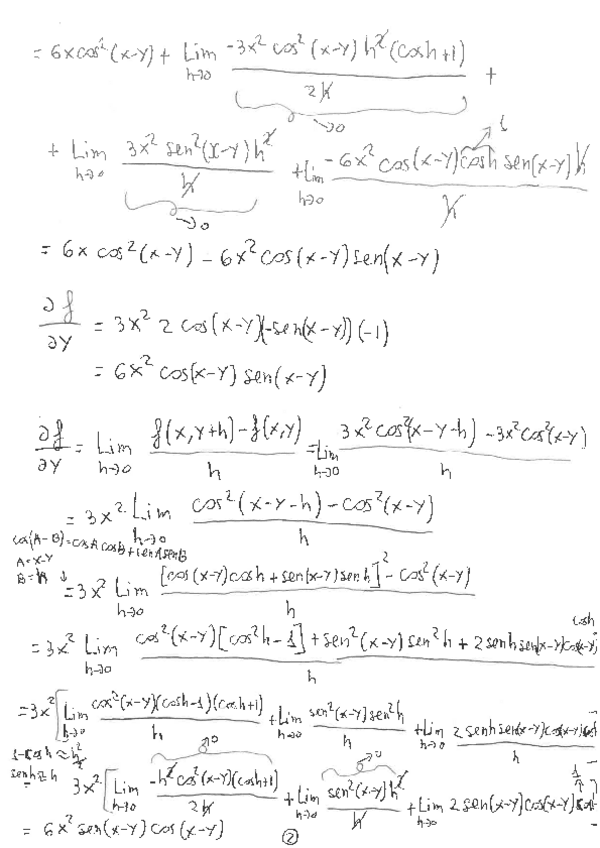 = 6x cos²(x-y) + Lim h→0 -3x² cos²(x-y) h²(cosh+1) / 2h →0 +
+ Lim h→0 3x² sen²(x-y) h² / h →0 + Lim h→0 -6x² cos(x-y) cosh sen(x-y) h / h
= 6x cos²(x-y) - 6x² cos(x-y) sen(x-y)
∂f/∂y = 3x² 2 cos(x-y)(-sen(x-y))(-1)
= 6x² cos(x-y) sen(x-y)
∂f/∂y = Lim h→0 f(x,y+h)-f(x,y) / h = Lim h→0 3x² cos²(x-y-h) - 3x² cos²(x-y) / h
= 3x² Lim h→0 cos²(x-y-h) - cos²(x-y) / h
cos(A-B)=cosA cosB+senA senB
A=x-y
B=h ↓
= 3x² Lim h→0 [cos(x-y)cosh + sen(x-y)senh]² - cos²(x-y) / h
= 3x² Lim h→0 cos²(x-y)[cos²h-1] + sen²(x-y) sen²h + 2senh sen(x-y)cos(x-y) cosh / h
= 3x² [Lim h→0 cos²(x-y)(cosh-1)(cosh+1) / h + Lim h→0 sen²(x-y)sen²h / h + Lim h→0 2senh sen(x-y)cos(x-y)cosh / h
1-cosh≈h²/2
senh≈h
= 3x² [Lim h→0 -h² cos²(x-y)(cosh+1) / 2h →0 + Lim h→0 sen²(x-y)h² / h →0 + Lim h→0 2sen(x-y)cos(x-y)
= 6x² sen(x-y) cos(x-y)
②